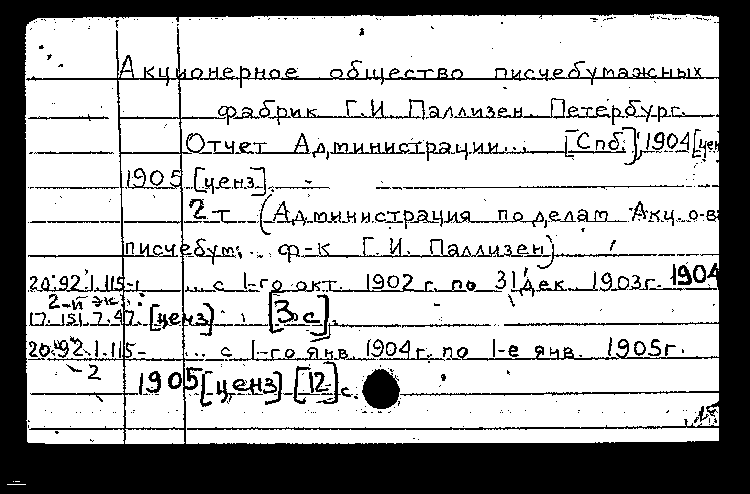 Акционерное общество писчебумажных
фабрик Г.И. Паллизен. Петербург.
Отчет Администрации... [Спб.], 1904 [цен
1905 [ценз].
2 т (Администрация по делам Акц. о-ва
писчебум. ф-к Г.И. Паллизен)
20.92.1.115-1 ... с 1-го окт. 1902 г. по 31 дек. 1903г. 1904
2-й экз.:
17.151.7.47. [ценз] [3 с].
20.92.1.115- ... с 1-го янв. 1904г. по 1-е янв. 1905г.
2
1905 [ценз] [12] с.